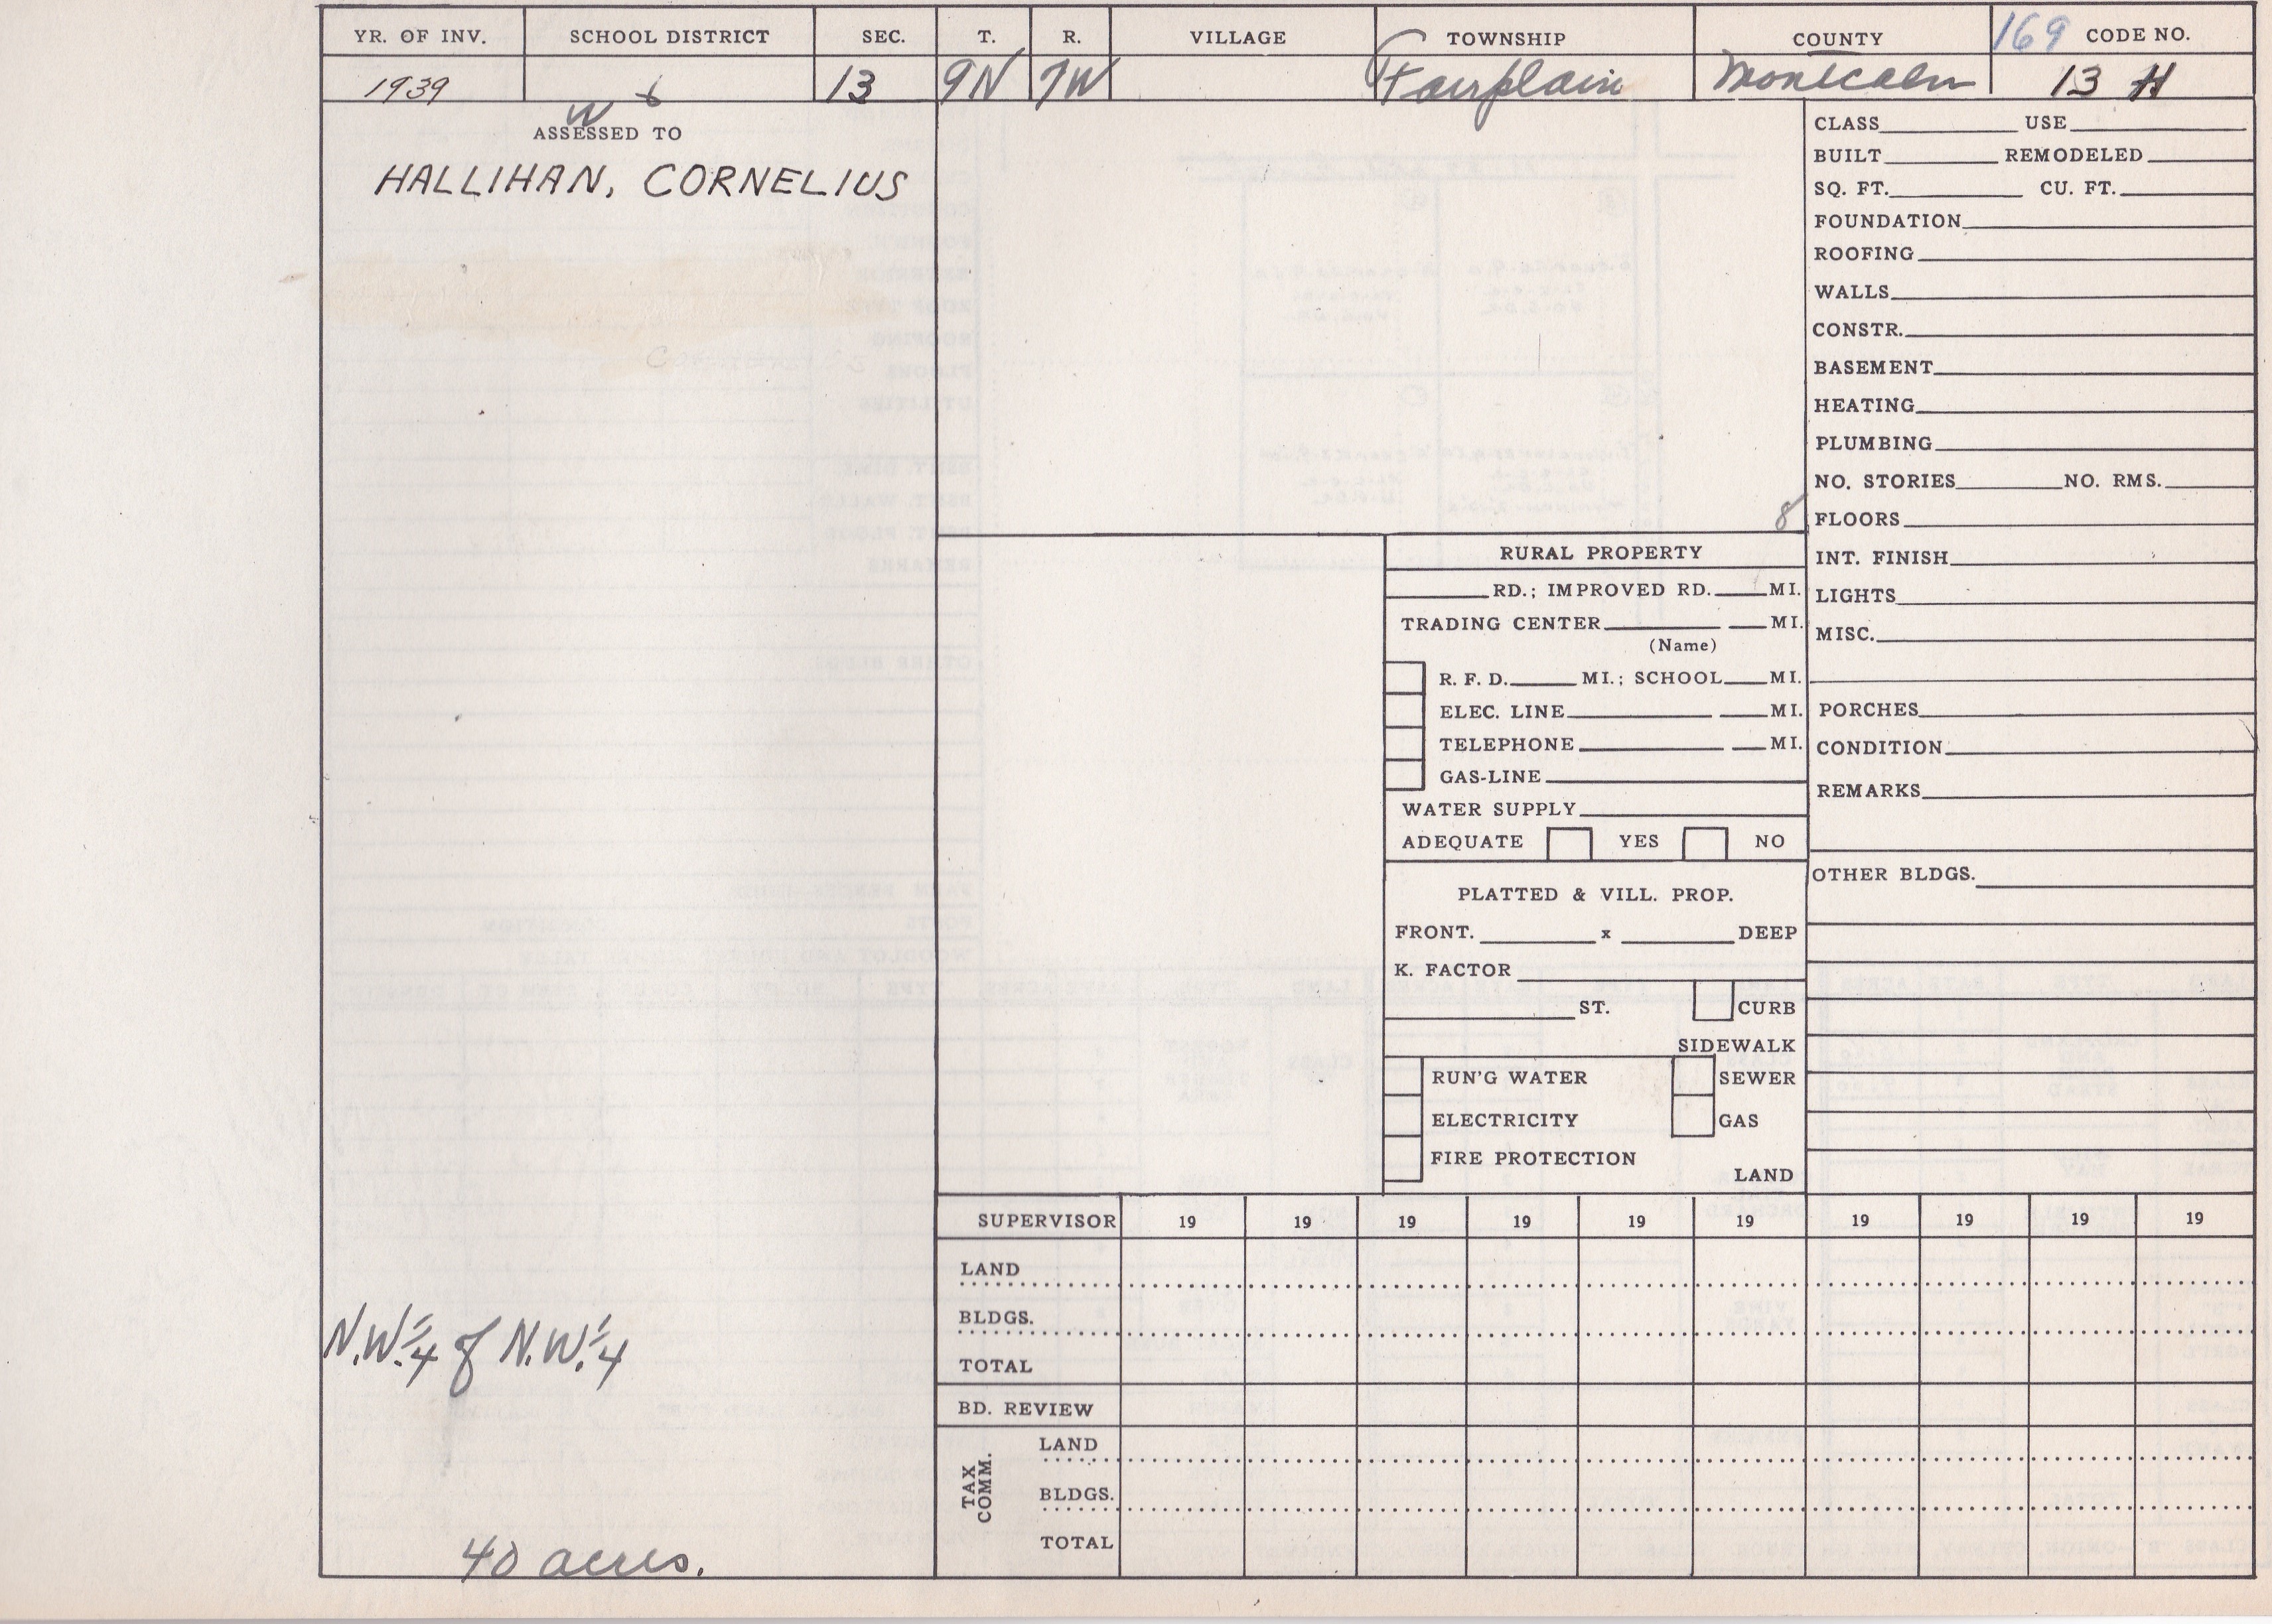 YR. OF INV. SCHOOL DISTRICT SEC. T. R. VILLAGE TOWNSHIP COUNTY 169 CODE NO.
1939 6 13 9N 7W Fairplain Montcalm 13 H
W
ASSESSED TO
HALLIHAN, CORNELIUS
N.W.1/4 of N.W.1/4
40 acres.
8
RURAL PROPERTY
RD.; IMPROVED RD. MI.
TRADING CENTER MI.
(Name)
R. F. D. MI.; SCHOOL MI.
ELEC. LINE MI.
TELEPHONE MI.
GAS-LINE
WATER SUPPLY
ADEQUATE YES NO
PLATTED & VILL. PROP.
FRONT. x DEEP
K. FACTOR
ST. CURB
SIDEWALK
RUN'G WATER SEWER
ELECTRICITY GAS
FIRE PROTECTION
LAND
CLASS USE
BUILT REMODELED
SQ. FT. CU. FT.
FOUNDATION
ROOFING
WALLS
CONSTR.
BASEMENT
HEATING
PLUMBING
NO. STORIES NO. RMS.
FLOORS
INT. FINISH
LIGHTS
MISC.
PORCHES
CONDITION
REMARKS
OTHER BLDGS.
SUPERVISOR 19 19 19 19 19 19 19 19 19 19
LAND
BLDGS.
TOTAL
BD. REVIEW
TAX COMM.
LAND
BLDGS.
TOTAL